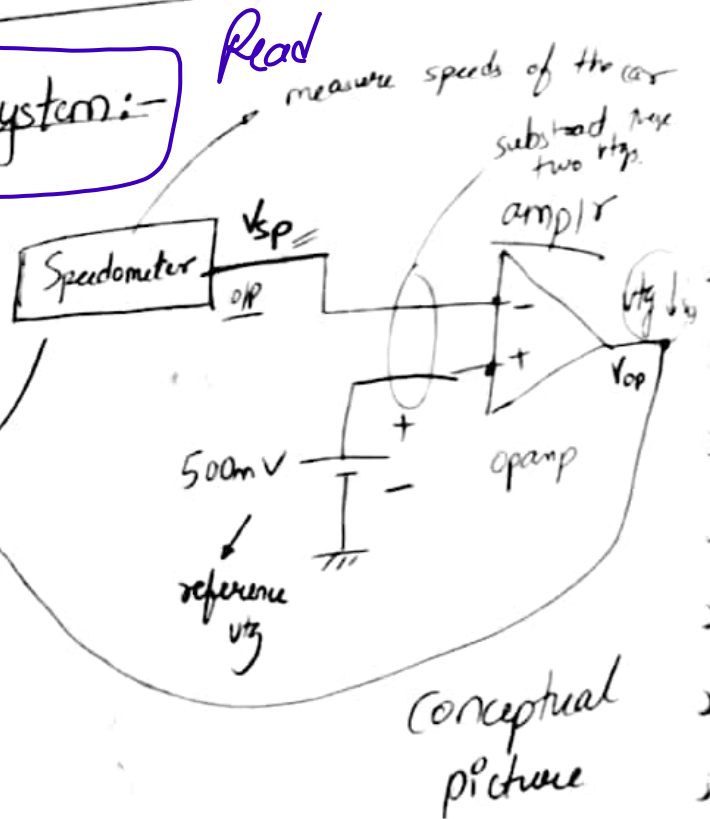 Read
ystem:-
measure speeds of the car
substract these
two vtgs.
amplr
Speedometer
Vsp
O/P
-
+
vtg ↓
Vop
+
500mV
-
opamp
reference
vtg
Conceptual
picture